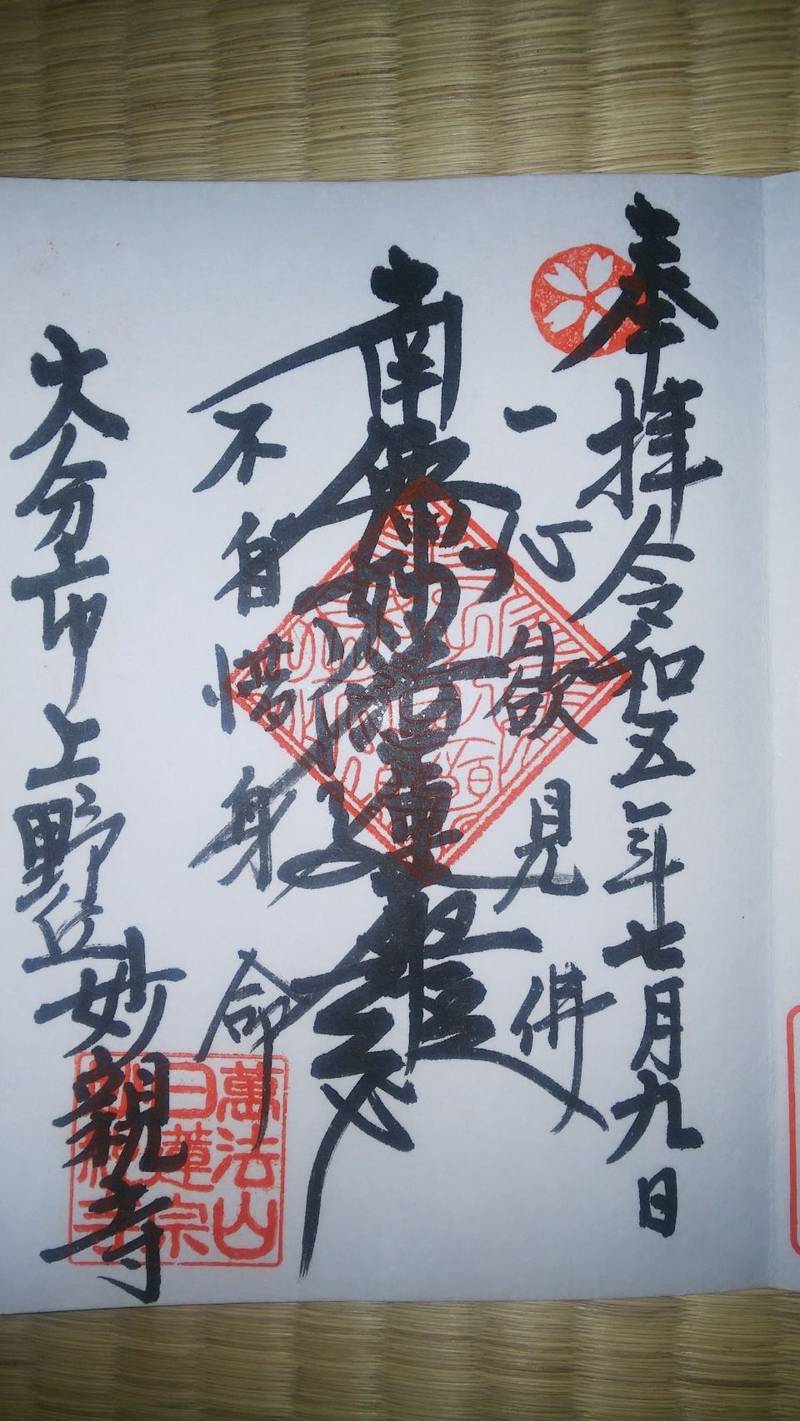 奉拝 令和五年七月九日
一心欲見佛
南無妙法蓮華経
不自惜身命
大分市上野丘 妙親寺
萬法山
日蓮宗
妙親寺